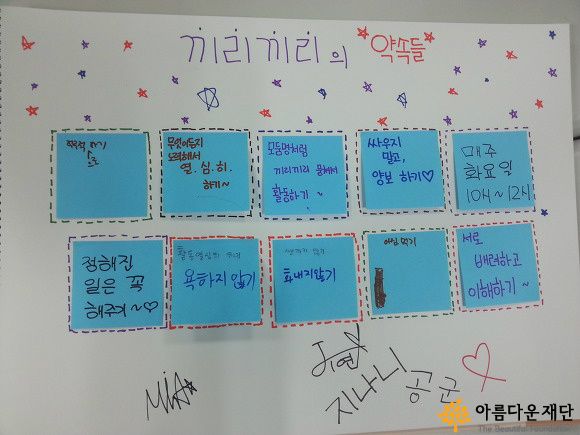 끼리끼리의 약속들
무엇이든지
노력해서
열.심.히.
하기~
모둠명처럼
끼리끼리 뭉쳐서
활동하기~
싸우지
말고,
양보 하기♡
매주
화요일
10시~12시
정해진
일은 꼭
해주기~♡
활동열심히 하기
욕하지 않기
화내지않기
야심 먹기
서로
배려하고
이해하기~
MiA
지나니
공군
아름다운재단
The Beautiful Foundation